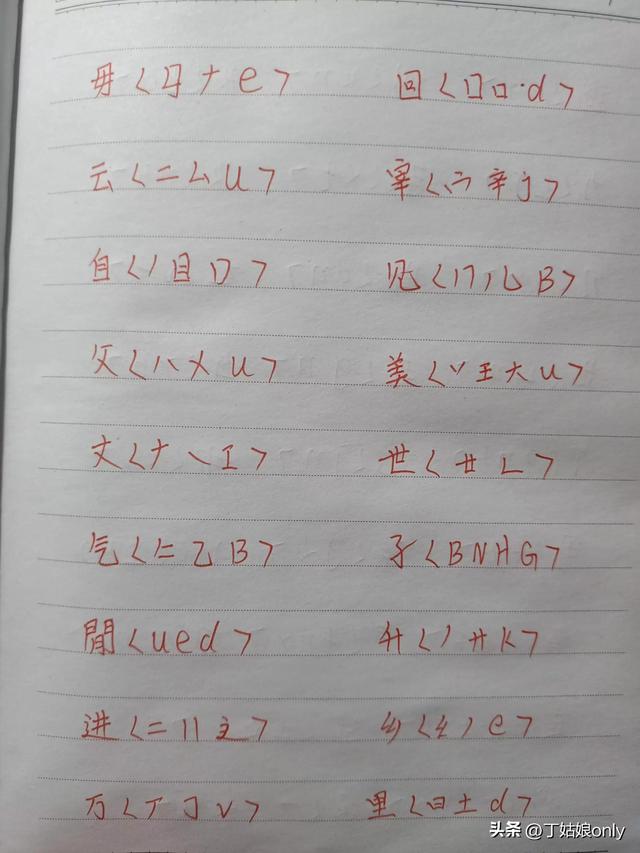 毋〈毌 ナ e〉 回〈囗口·d〉
云〈二厶 U〉 宰〈宀辛 j〉
自〈丿目〉 见〈冂儿 B〉
父〈八乂 U〉 美〈丷王大 U〉
文〈ナ㇏ I〉 世〈廿 L〉
气〈乙 B〉 子〈BNHG〉
閒〈ued〉 升〈丿廾 K〉
进〈二〢〉 乡〈丿 e〉
万〈丁 V〉 里〈曰土 d〉
头条 @丁姑娘only